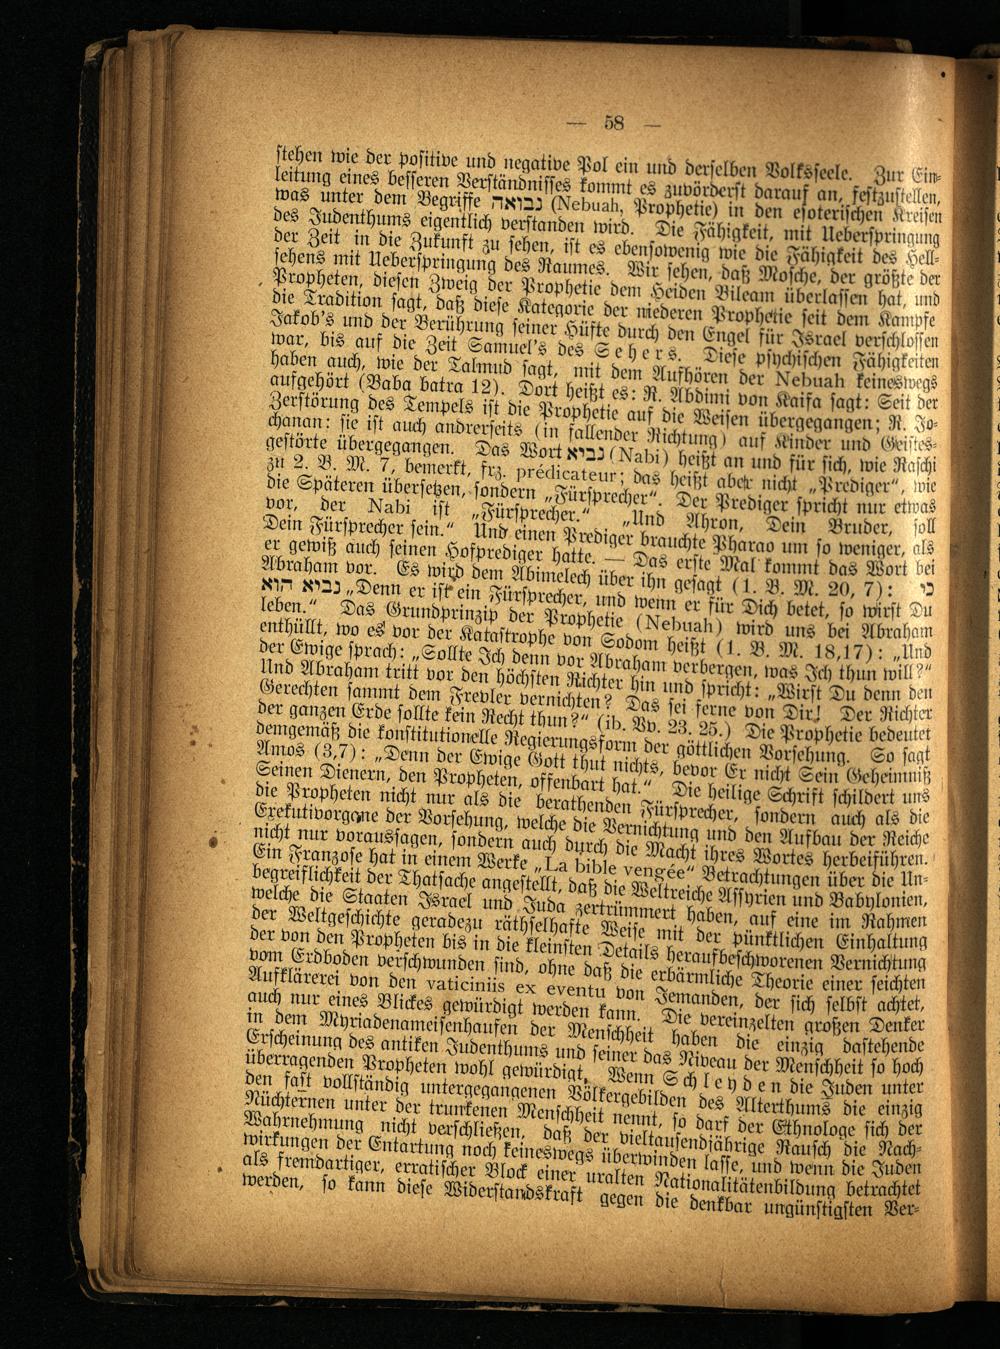 — 58 —
stehen wie der positive und negative Pol ein und derselben Volksseele. Zur Ein-
leitung eines besseren Verständnisses kommt es zuvörderst darauf an, festzustellen,
was unter dem Begriffe נבואה (Nebuah, Prophetie) in den esoterischen Kreisen
des Judenthums eigentlich verstanden wird. Die Fähigkeit, mit Ueberspringung
der Zeit in die Zukunft zu sehen, ist es ebensowenig wie die Fähigkeit des Hell-
sehens mit Ueberspringung des Raumes. Wir sehen, daß Mosche, der größte der
Propheten, diesen Zweig der Prophetie dem Heiden Bileam überlassen hat, und
die Tradition sagt, daß diese Kategorie der niederen Prophetie seit dem Kampfe
Jakob's und der Berührung seiner Hüfte durch den Engel für Israel verschlossen
war, bis auf die Zeit Samuel's des Sehers. Diese psychischen Fähigkeiten
haben auch, wie der Talmud sagt, mit dem Aufhören der Nebuah keineswegs
aufgehört (Baba batra 12). Dort heißt es: R. Abdimi von Kaifa sagt: Seit der
Zerstörung des Tempels ist die Prophetie auf die Weisen übergegangen; R. Jo-
chanan: sie ist auch andrerseits (in fallender Richtung) auf Kinder und Geistes-
gestörte übergegangen. Das Wort נביא (Nabi) heißt an und für sich, wie Raschi
zu 2. B. M. 7, bemerkt, frz. prédicateur; das heißt aber nicht „Prediger“, wie
die Späteren übersetzen, sondern „Fürsprecher“. Der Prediger spricht nur etwas
vor, der Nabi ist „Fürsprecher.“ „Und Ahron, Dein Bruder, soll
Dein Fürsprecher sein.“ Und einen Prediger brauchte Pharao um so weniger, als
er gewiß auch seinen Hofprediger hatte. — Das erste Mal kommt das Wort bei
Abraham vor. Es wird dem Abimelech über ihn gesagt (1. B. M. 20, 7): כי
נביא הוא „Denn er ist ein Fürsprecher, und wenn er für Dich betet, so wirst Du
leben.“ Das Grundprinzip der Prophetie (Nebuah) wird uns bei Abraham
enthüllt, wo es vor der Katastrophe von Sodom heißt (1. B. M. 18,17): „Und
der Ewige sprach: „Sollte Ich denn vor Abraham verbergen, was Ich thun will?“
Und Abraham tritt vor den höchsten Richter hin und spricht: „Wirst Du denn den
Gerechten sammt dem Frevler vernichten? Das sei ferne von Dir! Der Richter
der ganzen Erde sollte kein Recht thun?“ (ib. Vv. 23. 25.) Die Prophetie bedeutet
demgemäß die konstitutionelle Regierungsform der göttlichen Vorsehung. So sagt
Amos (3,7): „Denn der Ewige Gott thut nichts, bevor Er nicht Sein Geheimniß
Seinen Dienern, den Propheten, offenbart hat.“ Die heilige Schrift schildert uns
die Propheten nicht nur als die berathenden Fürsprecher, sondern auch als die
Exekutivorgane der Vorsehung, welche die Vernichtung und den Aufbau der Reiche
nicht nur voraussagen, sondern auch durch die Macht ihres Wortes herbeiführen.
Ein Franzose hat in einem Werke „La bible vengée“ Betrachtungen über die Un-
begreiflichkeit der Thatsache angestellt, daß die Weltreiche Assyrien und Babylonien,
welche die Staaten Israel und Juda zertrümmert haben, auf eine im Rahmen
der Weltgeschichte geradezu räthselhafte Weise mit der pünktlichen Einhaltung
der von den Propheten bis in die kleinsten Details heraufbeschworenen Vernichtung
vom Erdboden verschwunden sind, ohne daß die erbärmliche Theorie einer seichten
Aufklärerei von den vaticiniis ex eventu von Jemanden, der sich selbst achtet,
auch nur eines Blickes gewürdigt werden kann. Die vereinzelten großen Denker
in dem Myriadenameisenhaufen der Menschheit haben die einzig dastehende
Erscheinung des antiken Judenthums und seiner das Niveau der Menschheit so hoch
überragenden Propheten wohl gewürdigt. Wenn Schleyden die Juden unter
den fast vollständig untergegangenen Völkergebilden des Alterthums die einzig
Nüchternen unter der trunkenen Menschheit nennt, so darf der Ethnologe sich der
Wahrnehmung nicht verschließen, daß der vieltausendjährige Rausch die Nach-
wirkungen der Entartung noch keineswegs überwinden lasse, und wenn die Juden
als fremdartiger, erratischer Block einer uralten Nationalitätenbildung betrachtet
werden, so kann diese Widerstandskraft gegen die denkbar ungünstigsten Ver-